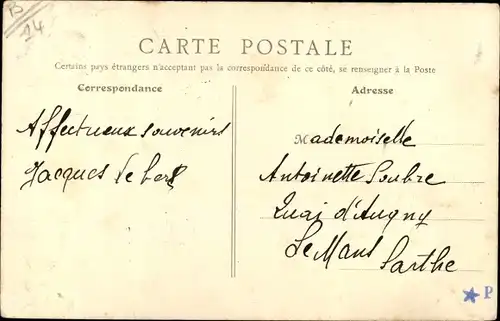 B
24
CARTE POSTALE
Certains pays étrangers n'acceptant pas la correspondance de ce côté, se renseigner à la Poste
Correspondance
Adresse
Affectueux souvenirs
Jacques
Mademoiselle
Antoinette Soubre
Quai d'Augny
Le Mans
Sarthe
P